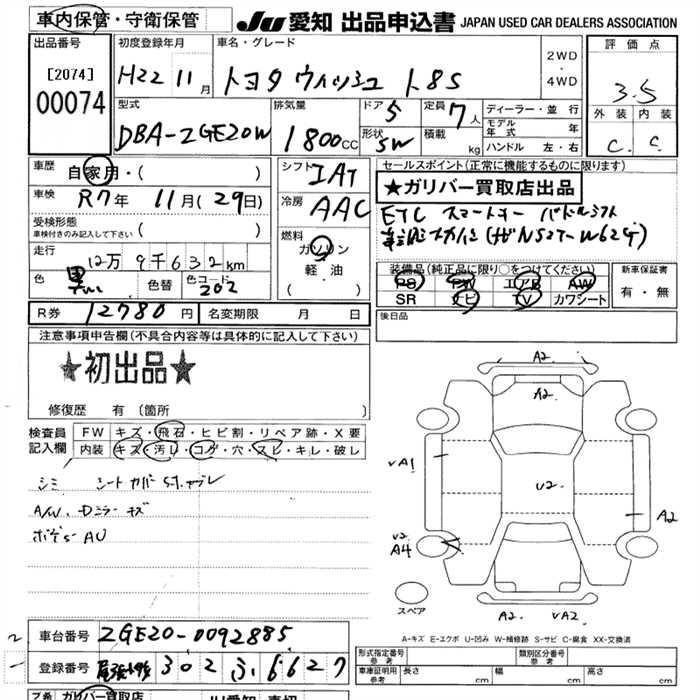 車内保管・守衛保管
JU 愛知 出品申込書 JAPAN USED CAR DEALERS ASSOCIATION
出品番号 初度登録年月 車名・グレード 2WD ・ 4WD 評価点
[2074] H22 11月 トヨタ ウィッシュ 1.8S 3.5
00074 型式 排気量 ドア 5 定員 7人 ディーラー・並行 外装 内装
DBA-ZGE20W 1800cc 形状 SW 積載 kg モデル年式 年 C C
ハンドル 左・右
車歴 自家用・( ) シフト IAT セールスポイント(正常に機能するものに限ります)
★ガリバー買取店出品
車検 R7年 11月(29日) 冷房 AAC
ETC スマートキー パドルシフト
受検形態 車検付きのみ記入して下さい ( )
燃料 ガソリン 軽油 ( )
(ﾅﾋﾞNSZT-W62G)
走行 12万9千632km
色 黒 色替 色コード 202
装備品(純正品に限り○をつけてください) 新車保証書
PS PW エアB AW 有・無
SR ナビ TV カワシート
R券 12780円 名変期限 月 日
後日品
注意事項申告欄(不具合内容等は具体的に記入して下さい)
★初出品★
修復歴 有 (箇所 )
検査員記入欄 FW キズ・飛石・ヒビ割・リペア跡・X要
内装 キズ・汚レ・コゲ・穴・スレ・キレ・破レ
シミ シートカバー
A/W. Dミラー キズ
A2
A2
VA1
U2
A2
V2
A4
スペア
A2 VA2
A-キズ E-エクボ U-凹み W-補修跡 S-サビ C-腐食 XX-交換済
車台番号 ZGE20-0092885
登録番号 尾張小牧 302 ふ 6627
形式指定番号 参考 類別区分番号 参考
車庫証明用 参考 長さ cm 幅 cm 高さ cm
ガリバー買取店 JU愛知